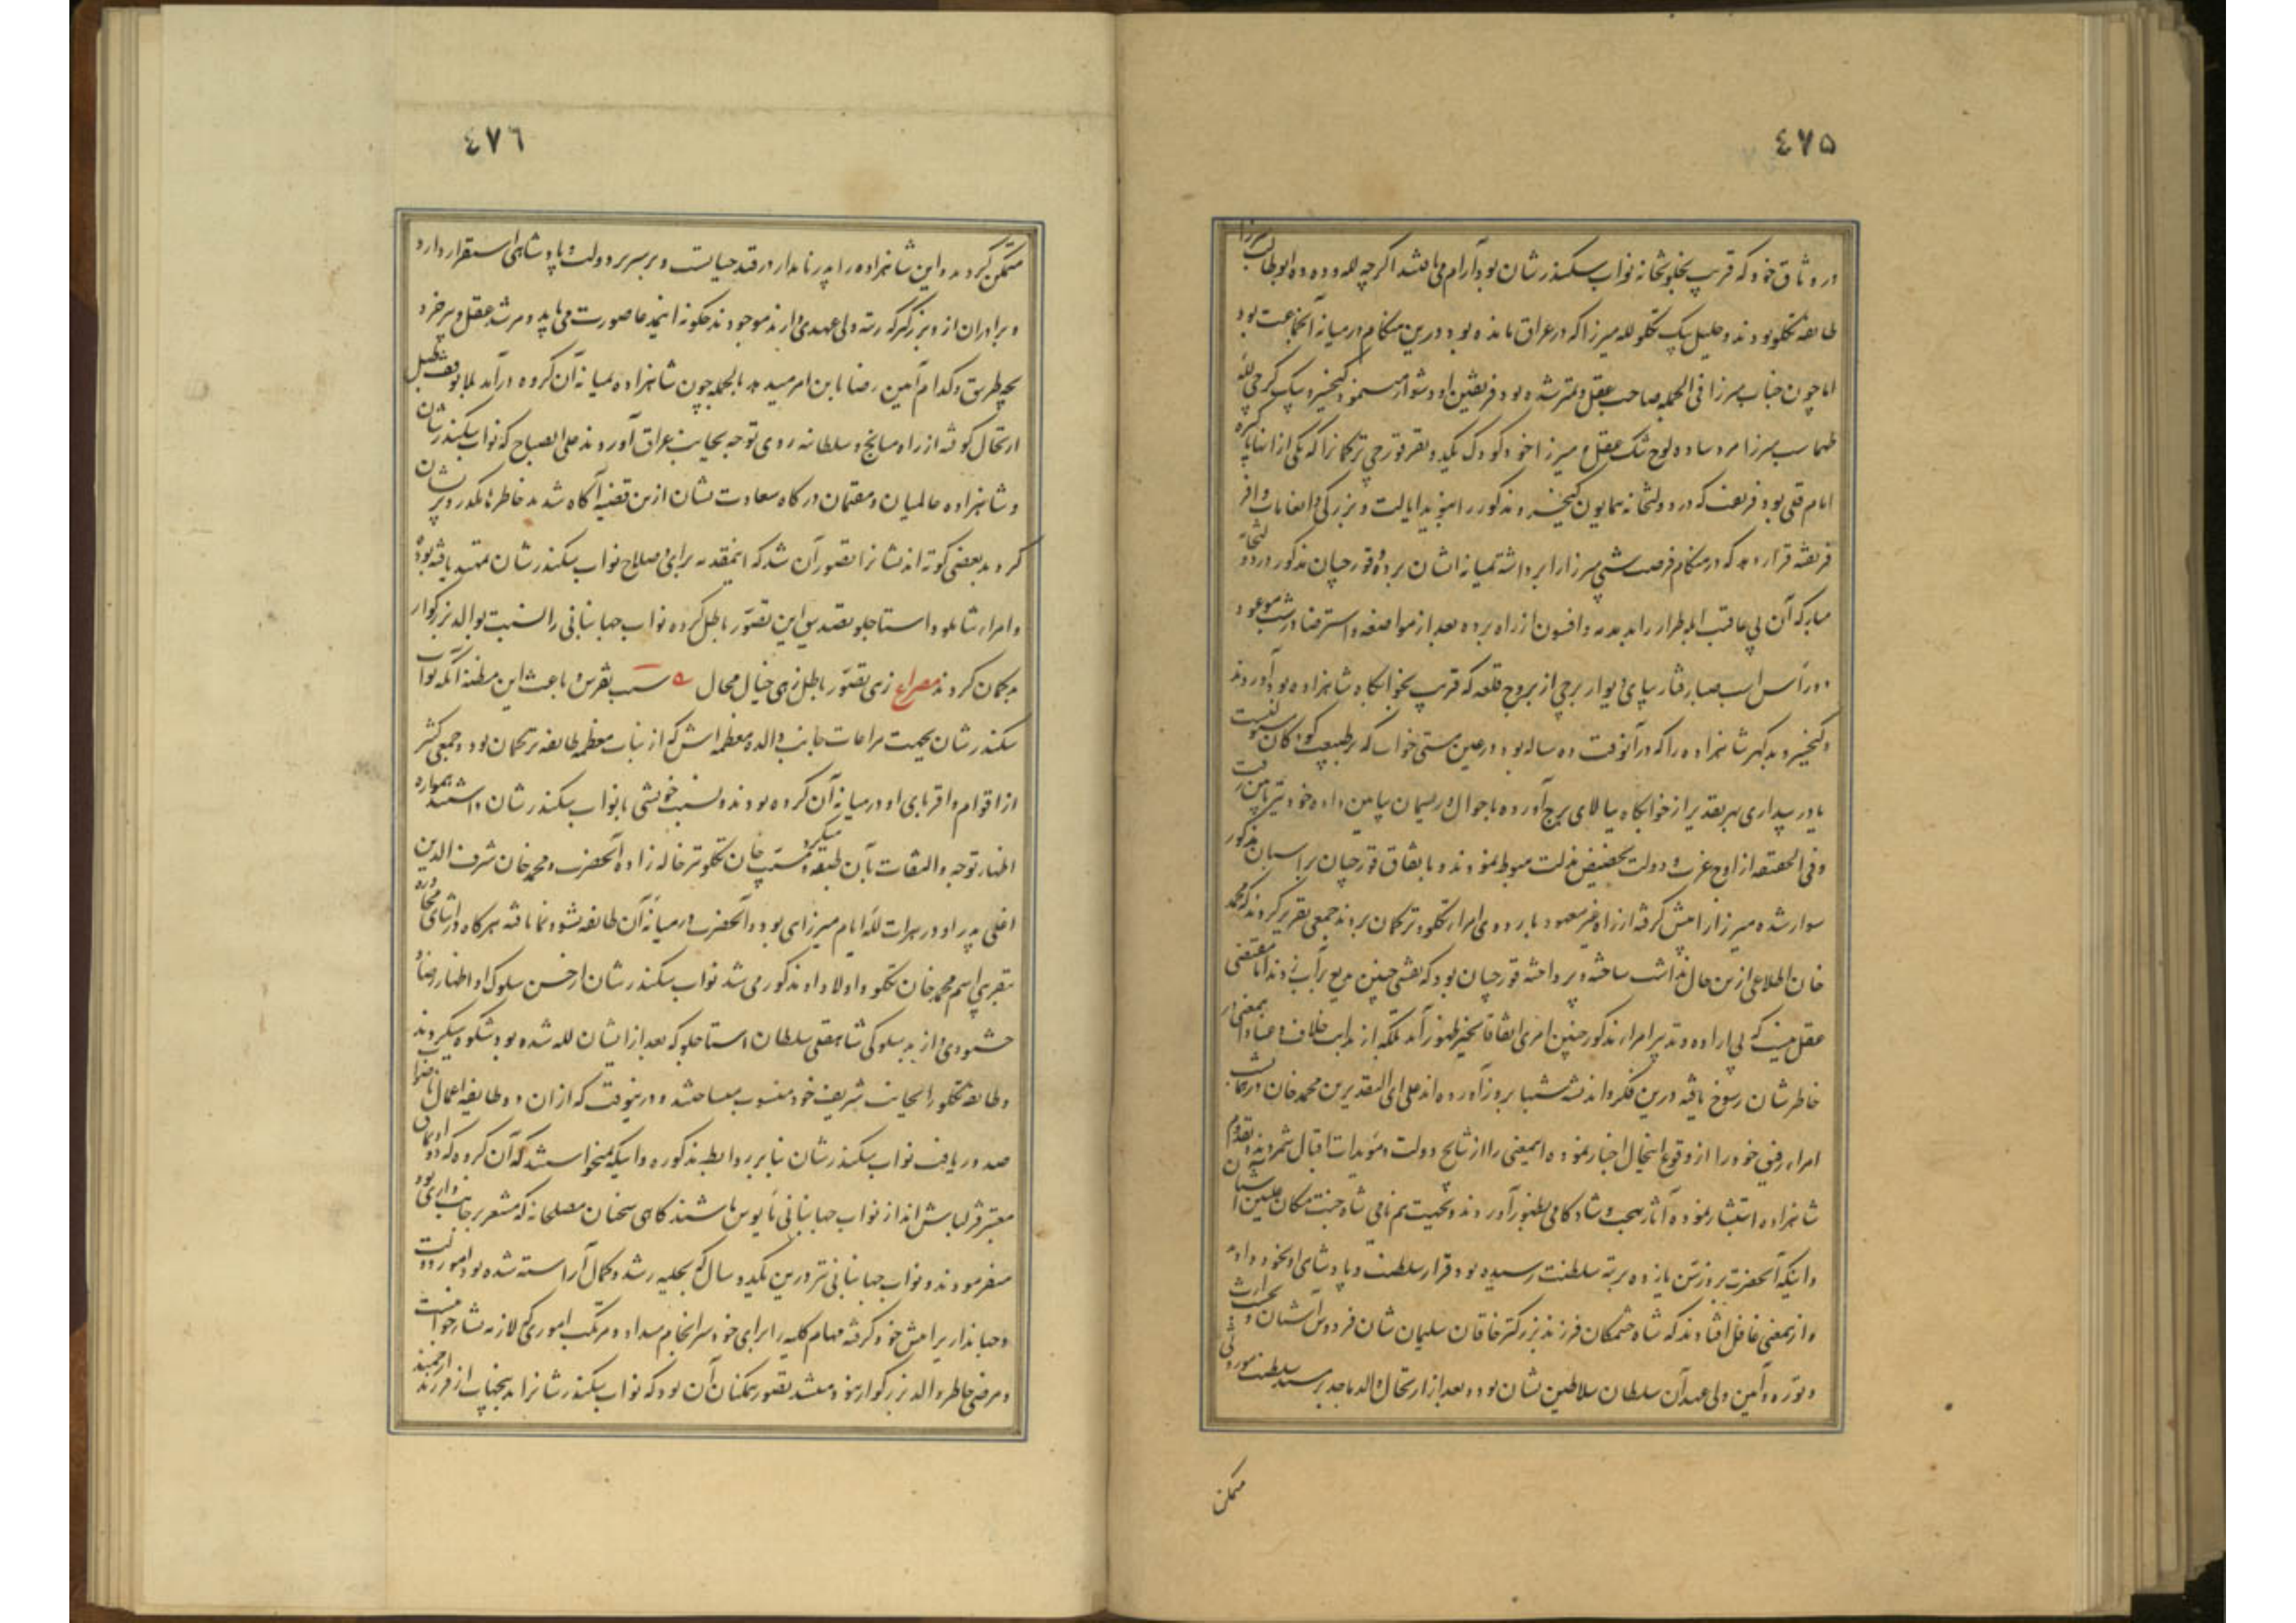 ٤٧٥
در وثاق خود که قریب بخلوتخانه نواب سکندرشان بود آرام می‌یافتند اگرچه لله و دده ابوطالب میرزا
طایفه تکلو بودند و خلیل بیک تکلو لله میرزا که در عراق مانده بود درین هنگام در میانه آنجماعت بود
اما چون جناب میرزا فی الجمله صاحب عقل و تمیز شده بود فریفتن او دشوار مینمود کیخسرو بیک گرجی لله
طهماسب میرزا مرد ساده لوح تنک عقل و میرزا خود کودک یکدو نفر قورچی ترکمانرا که یکی از آنها
امام قلی بود فریفته که در دولتخانه همایون کیخسرو مذکور را بنوید ایالت و بزرگی و انعامات وافر
فریفته قرار دهد که در هنگام فرصت شبی میرزا را برداشته بمیانه ایشان برد و قورچیان مذکور در دولتخانه
مبارکه آن بی عاقبت ابله طرار را بدمدمه و افسون از راه برده بعد از مواضعه و استرضا در شب موعود
دو راس اسب صبا رفتار بپای دیوار برجی از بروج قلعه که قریب بخوابگاه شاهزاده بود آوردند
و کیخسرو بدگهر شاهزاده را که در آنوقت ده ساله بود در عین مستی خواب که بر طبیعت کودکان مستولیست
یا در بیداری بهر تقدیر از خوابگاه ببالای برج آورده با جوال و ریسمان بپایین داده خود نیز پایین رفت
و فی الحقیقه از اوج عزت و دولت بحضیض مذلت هبوط نمودند و باتفاق قورچیان بر اسبان مذکور
سوار شده میرزا را پیش گرفته از راه غیر معهود باردوی امراء تکلو و ترکمان بردند جمعی تقریر کردند که محمد
خان اطلاعی ازین حال نداشت ساخته و پرداخته قورچیان بود که نقشی چنین بدیع بر آب زدند اما مقتضی
عقل نیست که بی اراده و تدبیر امراء مذکور چنین امری اتفاقا بحیز ظهور آمد بلکه از بدایت خلاف و عناد اینمعنی در
خاطرشان رسوخ یافته درین فکر و اندیشه شبها بروز آورده‌اند علی ای التقدیرین محمد خان و
امراء رفیق خود را از وقوع اینحال اخبار نموده اینمعنی را از نتایج دولت و مؤیدات اقبال شمردند و بقدوم
شاهزاده استبشار نموده آثار بهجت و شادکامی بظهور آوردند و بحیثیت هم نامی شاه جنت مکان علیین آشیان
و اینکه آنحضرت نیز در سن یازده بمرتبه سلطنت رسیده بود قرار سلطنت و پادشاهی او بخود دادند
و ازینمعنی غافل افتادند که شاه حشمکان فرزند بزرگتر خاقان سلیمان شان فردوس آشیان و بحسب ارث
و توره و آیین ولی عهد آن سلطان سلاطین نشان بود و بعد از ارتحال والد ماجد بر مسند سلطنت موروثی
متمکن
٤٧٦
متمکن گردید و این شاهزاده را پدر نامدار در قید حیاتست و بر سریر دولت و پادشاهی استقرار دارد
و برادران از و بزرگتر که رتبه ولی عهدی دارند موجودند چگونه این مدعا صورت می‌یابد و مرشد عقل و پیر خرد
بچه طریق و کدام آیین رضا باین امر میدهد بالجمله چون شاهزاده بمیانه آن گروه درآمد بلا توقف طبل
ارتحال کوفته از راه میانج و سلطانیه روی توجه بجانب عراق آوردند علی الصباح که نواب سکندرشان
و شاهزاده عالمیان و مقیمان درگاه سعادت نشان ازین قضیه آگاه شدند خاطرها مکدر و پریشان
کردید بعضی کوته اندیشانرا تصور آن شد که اینمقدمه برای و صلاح نواب سکندرشان تمهید یافته بوده
و امراء شاملو و استاجلو تصدیق این تصور باطل کرده نواب جهانبانی را نسبت بوالد بزرگوار
بدگمان کردند مصراع زهی تصور باطل زهی خیال محال ه سبب تفرس و باعث این مظنه آنکه نواب
سکندرشان بجهت مراعات جانب والده معظمه‌اش که از بنات معظم طایفه ترکمان بود و جمعی کثیر
از اقوام و اقربای او در میانه آن گروه بودند و نسبت خویشی بانواب سکندرشان داشتند همواره
اظهار توجه و التفات بآن طبقه میکرد و مسیب خان تکلو نیز خاله زاده آنحضرت و محمد خان شرف الدین
اغلی پدر او در هرات لله ایام میرزایی بود و آنحضرت در میانه آن طایفه نشو و نما یافته هرگاه در اثنای محاوره
بتقریبی اسم محمد خان تکلو و اولاد او مذکور می‌شد نواب سکندرشان از حسن سلوک او اظهار رضا و
خشنودی و از بد سلوکی شاهقلی سلطان استاجلو که بعد از ایشان لله شده بود شکوه میکردند
و طایفه تکلو را بجانب شریف خود منسوب میساختند و درینوقت که از آن دو طایفه اعمال ناصواب
صدور یافت نواب سکندرشان بنابر روابط مذکوره و اینکه نمیخواستند که آن گروه که دو اویماق
معتبر قزلباش‌اند از نواب جهانبانی مایوس باشند گاهی سخنان مصلحانه که مشعر بر جانبداری بود
میفرمودند و نواب جهانبانی نیز درین یکدو سال که بحلیه رشد و کمال آراسته شده بود امور دولت
و جهانداری را پیش خود گرفته مهام کلیه را برای خود سرانجام میداد و مرتکب اموری که لازمه نشاء جوانیست
و مرضی خاطر والد بزرگوار نبود میشد تصور همکنان آن بود که نواب سکندرشانرا بدینجهات از فرزند ارجمند